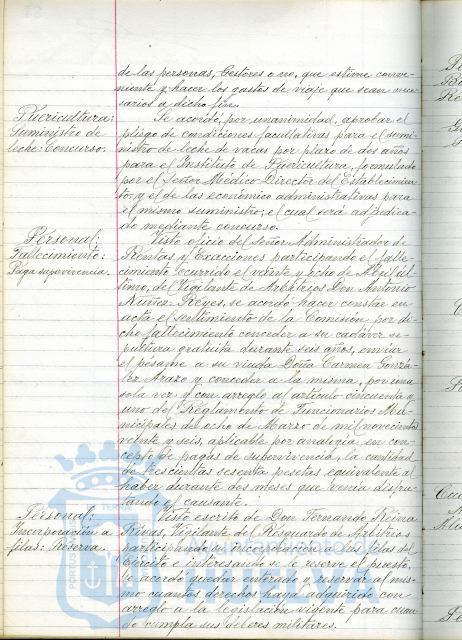 de las personas, Gestores o no, que estime conve-
niente y hacer los gastos de viaje que sean nece-
sarios a dicho fin.
Puericultura:
Suministro de
leche: Concurso.
Se acordó, por unanimidad, aprobar el
pliego de condiciones facultativas para el sumi-
nistro de leche de vacas por plazo de dos años
para el Instituto de Puericultura, formulado
por el Señor Médico-Director del Establecimien-
to, y el de las económico administrativas para
el mismo suministro, el cual será adjudica-
do mediante concurso.
Personal:
Fallecimiento:
Paga supervivencia.
Visto oficio del señor Administrador de
Rentas y Exacciones participando el falle-
cimiento ocurrido el veinte y ocho de Abril úl-
timo, del Vigilante de Arbitrios Don Antonio
Nuñez Reyes, se acordó hacer constar en
acta el sentimiento de la Comisión por di-
cho fallecimiento conceder a su cadáver se-
pultura gratuita durante seis años, enviar
el pésame a su viuda Doña Carmen Gonzá-
lez Arazo y conceder a la misma, por una
sola vez y con arreglo al artículo cincuenta y
uno del Reglamento de Funcionarios Mu-
nicipales del ocho de Marzo de mil novecientos
veinte y seis, aplicable por analogía, en con-
cepto de pagas de supervivencia, la cantidad
de trescientas sesenta pesetas equivalente al
haber durante dos meses que venia disfru-
tando el causante.
Personal:
Incorporación a
filas: Reserva.
Visto escrito de Don Fernando Reina
Rivas, Vigilante del Resguardo de Arbitrios
participando su incorporación a las filas del
Ejército e interesando se le reserve el puesto,
se acordó quedar enterado y reservar al mis-
mo cuantos derechos haya adquirido con
arreglo a la legislación vigente para cuan-
do cumpla sus deberes militares.